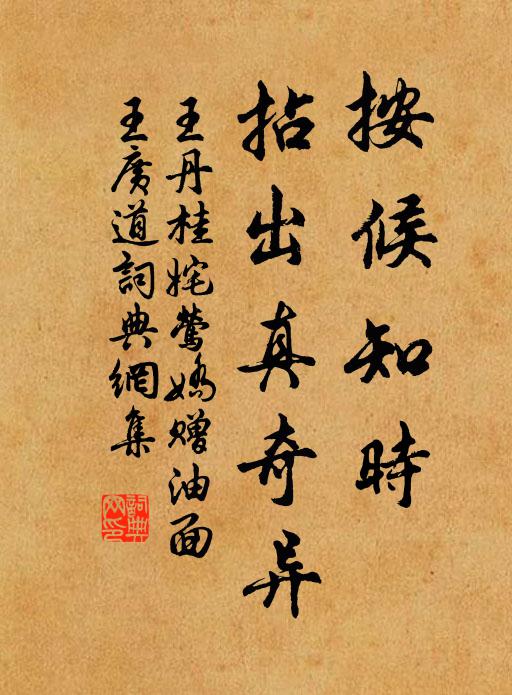 按候知時
拈出真奇异
王丹桂姹鶯嬌贈油面
王廣道詞典網集
詞典網印